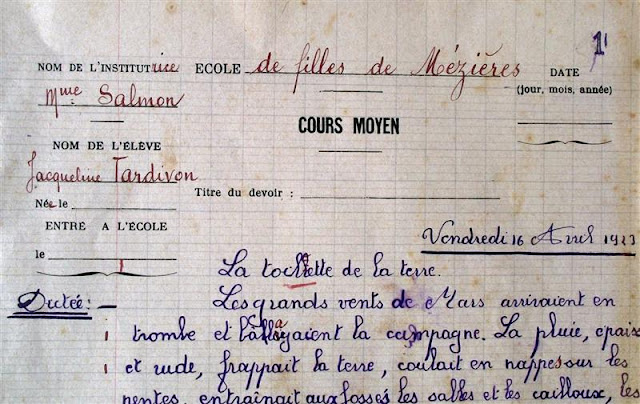 1
NOM DE L'INSTITUTrice ECOLE de filles de Mézières DATE
(jour, mois, année)
Mme Salmon
COURS MOYEN
NOM DE L'ÉLÈVE
Jacqueline Tardivon
Titre du devoir :
Née le
ENTRÉ A L'ÉCOLE
le
Vendredi 16 Avril 1923
La toilette de la terre.
Dictée : Les grands vents de Mars arrivaient en
trombe et balayaient la campagne. La pluie, épaisse
et rude, frappait la terre, coulait en nappes sur les
pentes, entraînait aux fossés les sables et les cailloux, les